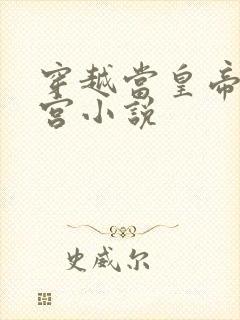 穿越當皇帝
宮小說
史威尔